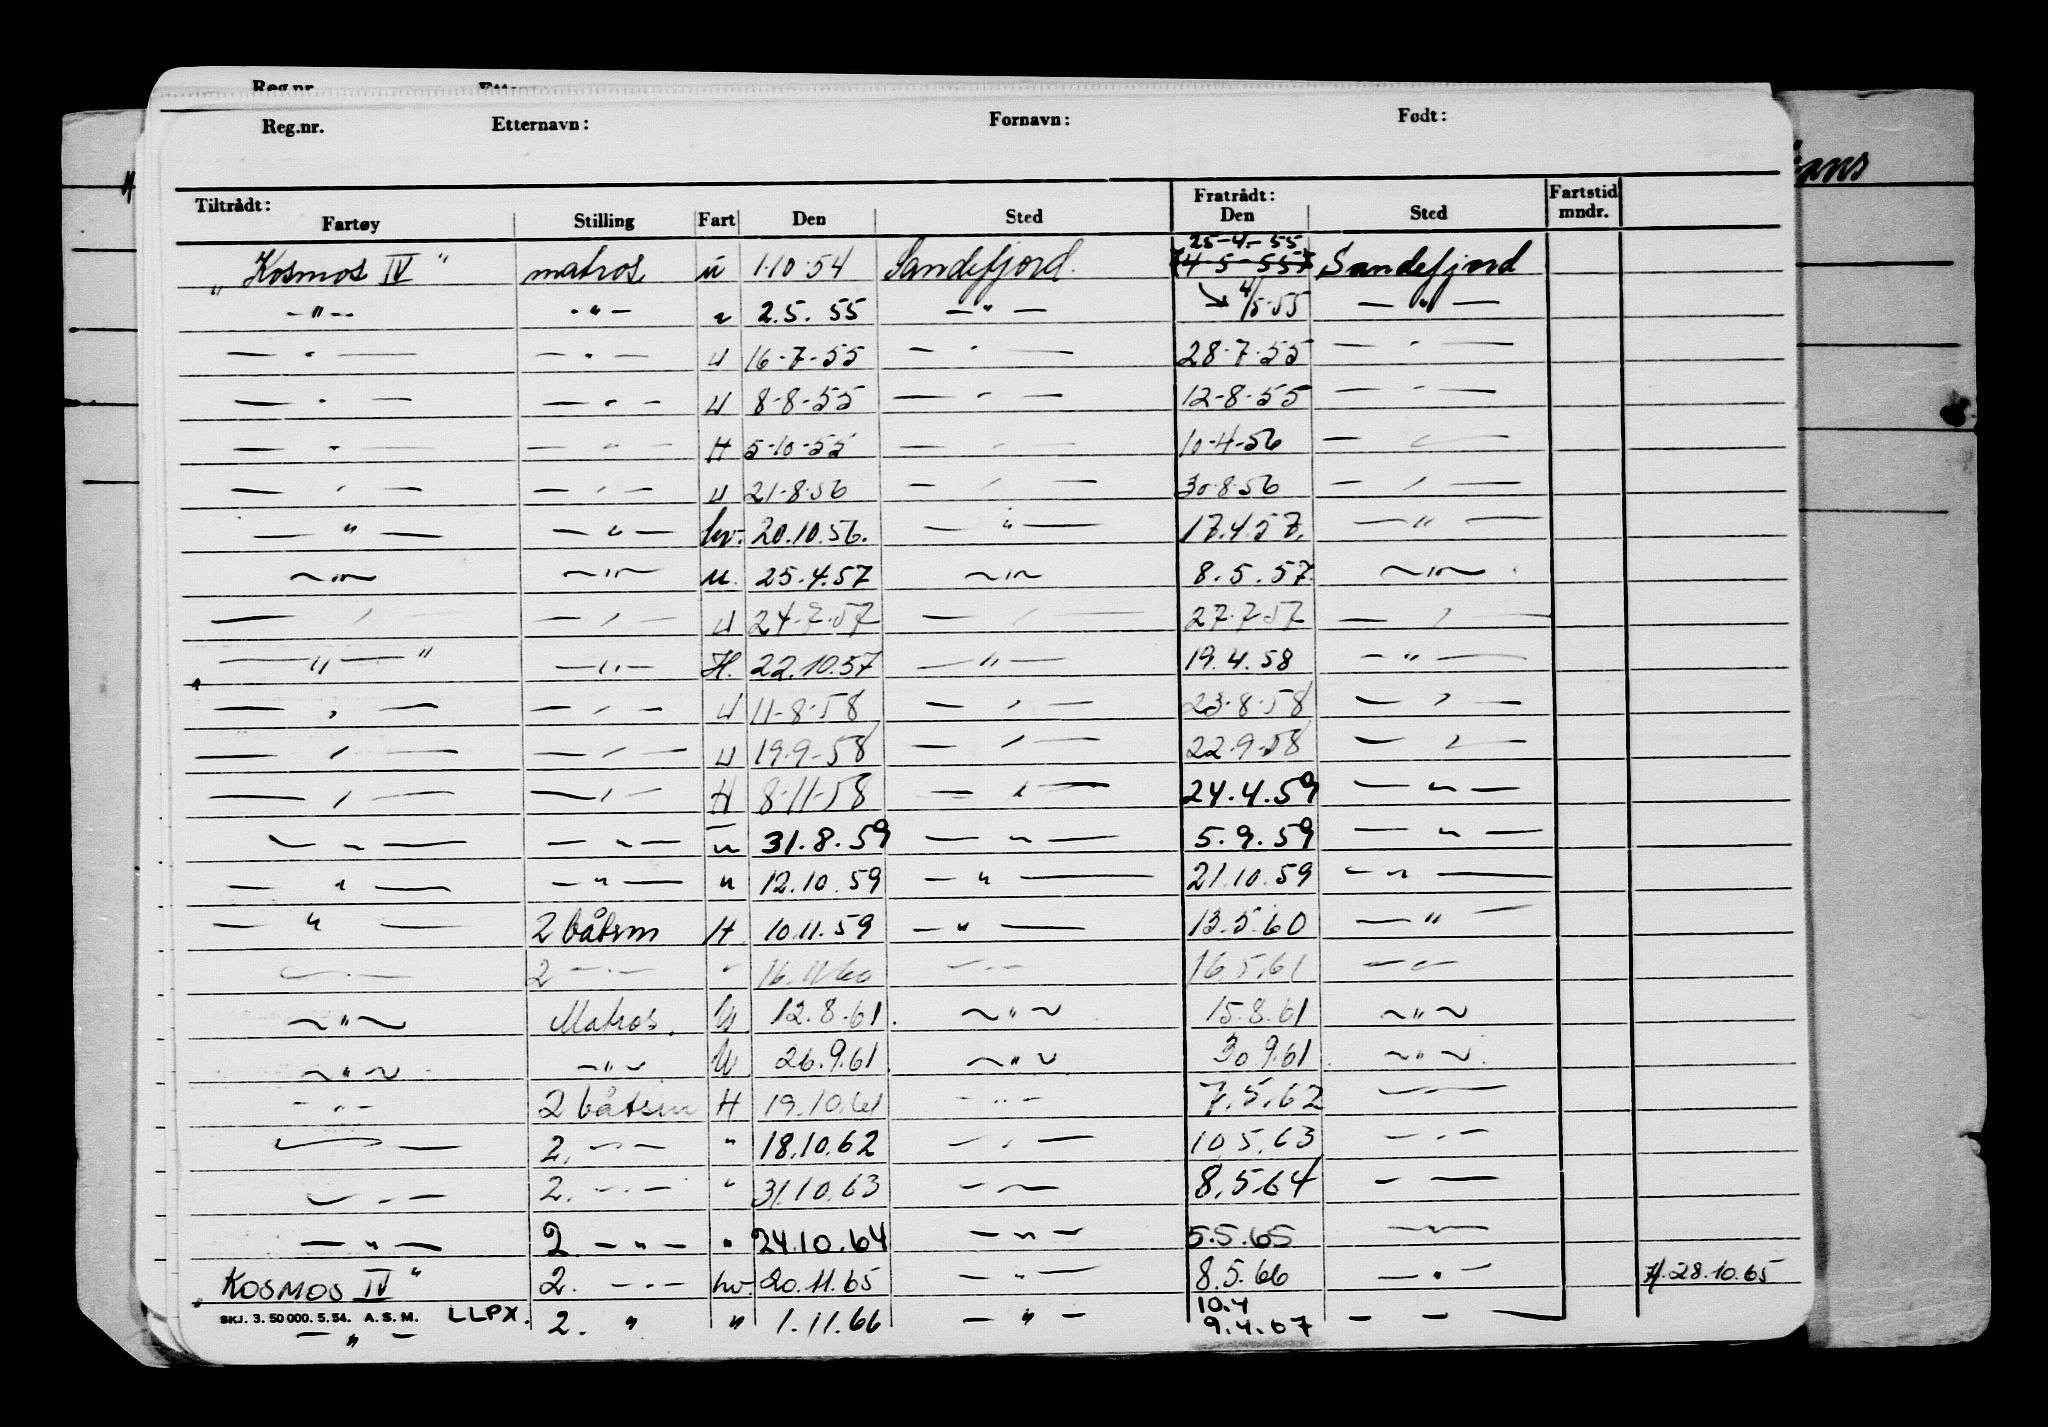 Reg.nr.
Reg.nr. Etternavn: Fornavn: Født:
Tiltrådt: Fratrådt: Fartstid
Fartøy Stilling Fart Den Sted Den Sted mndr.
25-4-55
"Kosmos IV" matros u 1.10.54 Sandefjord. 4-5-55 Sandefjord
-"- -"- u 2.5.55 -"- 4/5-55 -"-
-"- -"- U 16-7-55 -"- 28-7-55 -"-
-"- -"- U 8-8-55 -"- 12-8-55 -"-
-"- -"- H 5-10-55 -"- 10-4-56 -"-
-"- -"- U 21-8-56 -"- 30-8-56 -"-
-"- -"- hv. 20.10.56. -"- 17.4.57. -"-
-"- -"- u. 25.4.57 -"- 8.5.57. -"-
-"- -"- U 24-7-57 -"- 27.7-57 -"-
-"- -"- H. 22.10.57 -"- 19.4.58 -"-
-"- -"- U 11-8-58 -"- 23-8-58 -"-
-"- -"- U 19-9-58 -"- 22-9-58 -"-
-"- -"- H 8-11-58 -"- 24.4.59 -"-
-"- -"- u 31.8.59 -"- 5.9.59 -"-
-"- -"- " 12.10.59 -"- 21.10.59 -"-
-"- 2 båtsm H 10.11.59 -"- 13.5.60 -"-
-"- 2 -"- " 16.11.60 -"- 16.5.61 -"-
-"- Matros. U 12.8.61. -"- 15.8.61 -"-
-"- -"- U 26.9.61. -"- 30 9.61. -"-
-"- 2 båtsm H 19.10.61 -"- 7.5.62 -"-
-"- 2. -"- " 18.10.62 -"- 10.5.63 -"-
-"- 2. -"- " 31.10.63 -"- 8.5.64 -"-
-"- 2 -"- " 24.10.64 -"- 5.5.65 -"-
"KOSMOS IV" 2. -"- hv. 20.11.65 -"- 8.5.66 -"- H. 28.10.65
10.4
SKJ. 3. 50 000. 5. 54. A. S. M. LLPX.
-"- 2. " " 1.11.66 -"- 9.4.67 - -